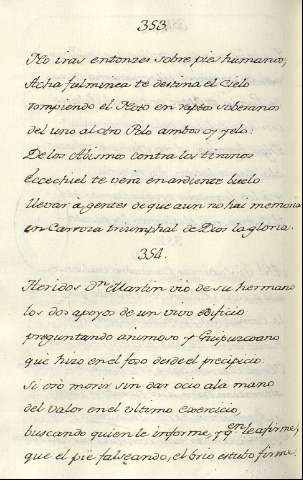 353.
No iras entonzes sobre pies humanos,
Acha fulminea te destina el Cielo
rompiendo el Nexo en raptos soberanos
del uno al otro Polo ambos oy yelo:
De los Abismos contra los tiranos
Ecechiel te verà en ardiente buelo
llevar à gentes de que aun no hai memoria
en Carroza triumphal de Dios la gloria.
354.
Heridos Dn. Martin viò de su hermano
los dos apoyos de un vivo edificio
preguntando animoso y Guipuzcoano
que hizo en el foso desde el precipicio:
Si oiò morir sin dar ocio a la mano
del valor en el ultimo exercicio,
buscando quien le informe, y qn. le afirme,
que el pie falseando, el brio estubo firme.